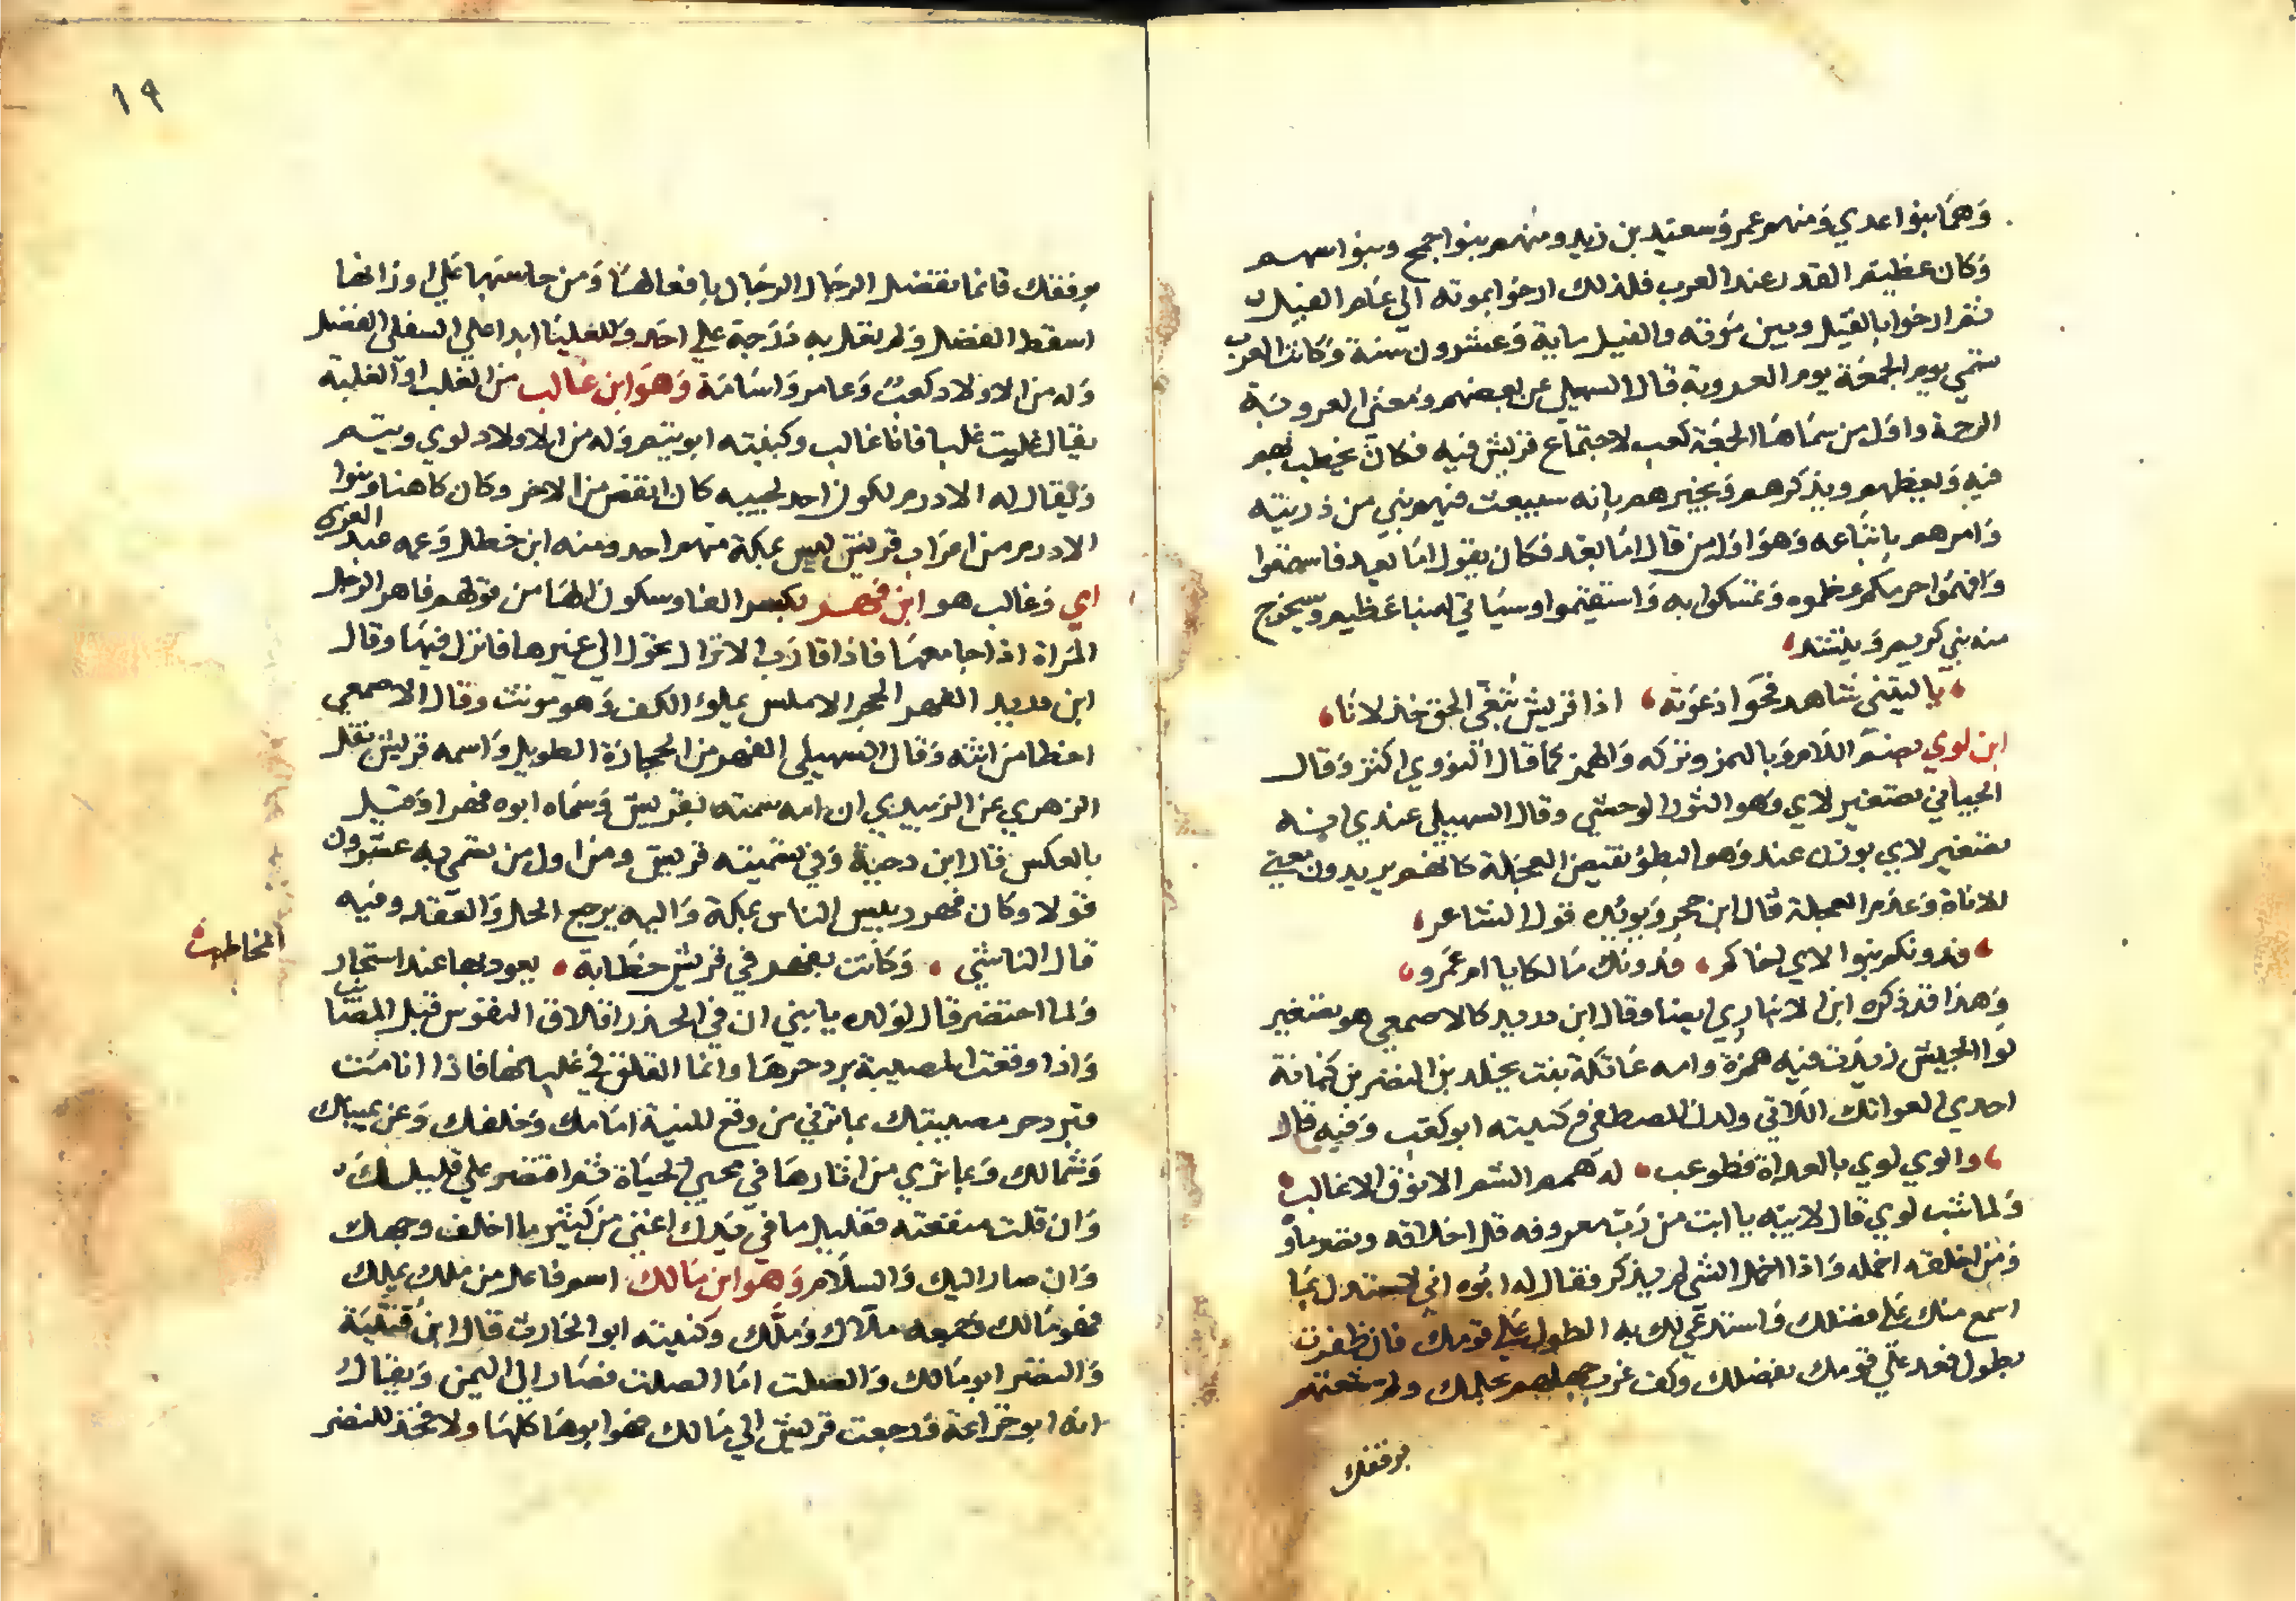 وهما بنوا عدي ومنهم عمر وسعيد بن زيد ومنهم بنوا جمح وبنوا سهم
وكان عظيم القدر عند العرب فلذلك ارخوا بموته الى عام الفيل
ثم ارخوا بالفيل وبين موته والفيل ماية وعشرون سنة وكانت العرب
تسمي يوم الجمعة يوم العروبة قال السهيلي عن بعضهم ومعنى العروبة
الرحمة واول من سماها الجمعة كعب لاجتماع قريش فيه فكان يخطبهم
فيه ويعظهم ويذكرهم ويخبرهم بانه سيبعث فيهم نبي من ذريته
وامرهم باتباعه وهو اول من قال اما بعد فكان يقول اما بعد فاسمعوا
وافهموا حرمكم عظموه وتمسكوا به واستقيموا وسياتي لهبنا عظيم وسيخرج
منه نبي كريم وينشد
يا ليتني شاهد فحوا دعوته اذا قريش تبغي الحق خذلانا
ابن لوي بضم اللام وبالهمز وتركه والهمز كما قال النووي اكثر وقال
الجياني تصغير لاي وهو الثور الوحشي وقال السهيلي عندي انه
تصغير لاي بوزن عند وهو البطؤ نقيض العجلة كانهم يريدون معنى
الاناة وعدم العجلة قال ابن حجر ويويده قول الشاعر
فدونكم بنوا لاي اخاكم فدونك مالكا يا ام عمرو
وهذا قد ذكره ابن الانباري ايضا وقال ابن دريد كالاصمعي هو تصغير
لوا الجيش زيدت فيه همزة وامه عاتكة بنت يخلد بن النضر بن كنانة
احدي العواتك اللاتي ولدن المصطفى كنيته ابو كعب وفيه قال
والوي لوي بالعداة فطوعب له همم الشم الانوف الاغالب
ولما شب لوي قال لابيه يا ابت من رب معروفه قل اخلاقه ونضر ماؤه
ومن اخلقه اخمله واذا اخمل الشي لم يذكر فقال له ابوه اني لاستدل بما
اسمع منك على فضلك واستدعي لك به الطول على قومك فان ظفرت
بطول فعد علي قومك بفضلك وكف غرب جهلهم بحلمك ولم شعثهم
برفقك
١٩
برفقك فانما تفضل الرجال الرجال بافعالها ومن حاسبها علي اوزانها
اسقط الفضل ولم تعل به درجة علي احد وللعليا ابدا علي السفلى الفضل
وله من الاولاد كعب وعامر واسامة وهو ابن غالب من الغلب او الغلبة
يقال غلبت غلبا فانا غالب وكنيته ابو تيم وله من الاولاد لوي وتيم
ويقال له الادرم لكون احد لحييه كان انقص من الاخر وكان كاهنا وبنوا
الادرم من اعراب قريش ليس بمكة منهم احد ومنه ابن خطل وعمه عبد العزى
اي وغالب هو ابن فهر بكسر الفا وسكون الها من قولهم فاهر الرجل
المراة اذا جامعها فاذا قارب الانزال تحول الي غيرها فانزل فيها وقال
ابن دريد الفهر الحجر الاملس يملؤ الكف وهو مونث وقال الاصمعي
اخطا من انثه وقال السهيلي الفهر من الحجارة الطويل واسمه قريش نقل
الزهري عن الزبيري ان امه سمته بقريش وسماه ابوه فهرا وقيل
بالعكس قال ابن دحية وفي تسميته قريش ومن اول من تسمى به عشرون
قولا وكان فهر رييس الناس بمكة واليه يرجع الحل والعقد وفيه
قال الناشي وكانت بفهر في قريش خطابة يعود بها عند اشتجار
المخاطب
ولما احتضر قال لولده يا بني ان في الحذر اقلاق النفوس قبل المصائب
واذا وقعت المصيبة برد حرها وانما القلق في غليانها فاذا انا مت
فبرد حر مصيبتك بما ترى من وقع المنية امامك وخلفك وعن يمينك
وشمالك وبما تري من اثارها في محيي الحياة ثم اقتصر علي قليلك
وان قلت منفعته فقليل ما في يدك اغني من كثير ما اخلف وجهك
وان صار اليك والسلام وهو ابن مالك اسم فاعل من ملك يملك
فهو مالك وجمعه ملاك وملك وكنيته ابو الحارث قال ابن قتيبة
والنضر ابو مالك والصلت اما الصلت فصار الي اليمن ويقال
انه ابو خزاعة ورجعت قريش الي مالك فهو ابوها كلها ولا فخذ للنضر